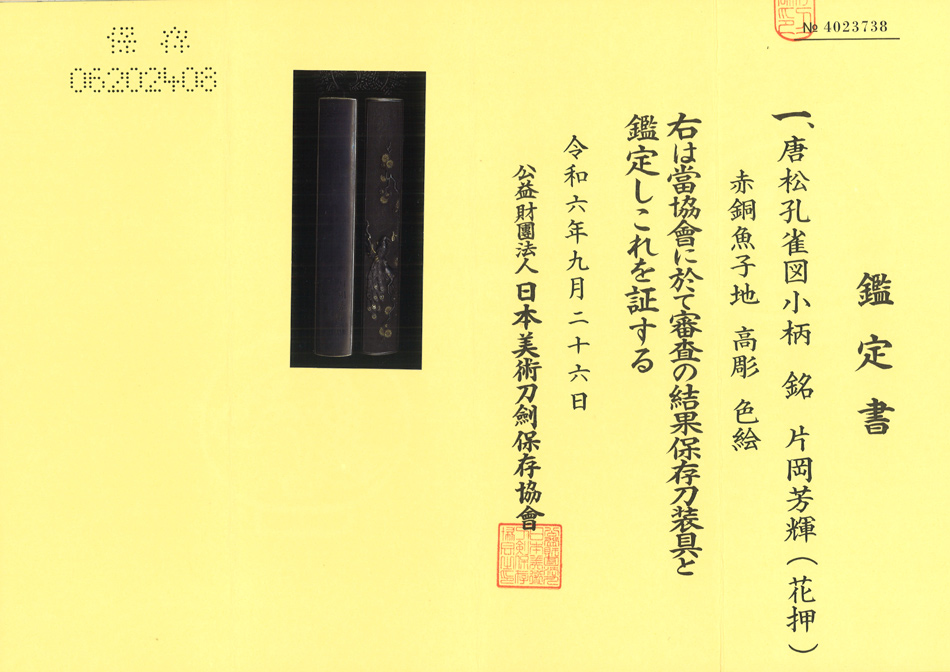 № 4023738
鑑定書
一、唐松孔雀図小柄 銘 片岡芳輝(花押)
赤銅魚子地 高彫 色絵
右は當協會に於て審査の結果保存刀装具と
鑑定しこれを証する
令和六年九月二十六日
公益財團法人日本美術刀劍保存協會
保存
06202408